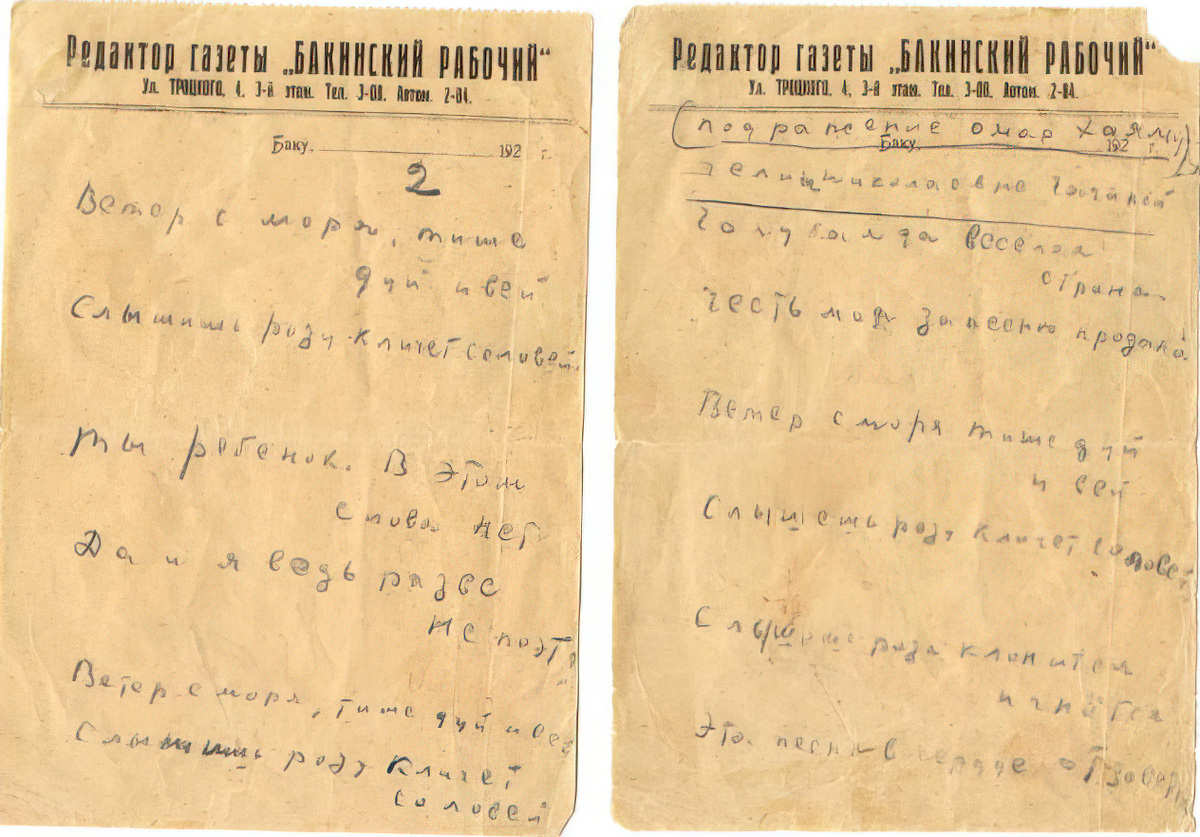 Редактор газеты „БАКИНСКИЙ РАБОЧИЙ“
Ул. ТРОЦКОГО, 4, 3-й этаж. Тел. 3-00. Автом. 2-84.
Баку, 192 г.
2
Ветер с моря, тише
дуй и вей
Слышишь розу кличет соловей
Ты ребенок. В этом
слова нет
Да и я ведь разве
не поэт
Ветер с моря, тише дуй и вей
Слышишь розу кличет
соловей
Редактор газеты „БАКИНСКИЙ РАБОЧИЙ“
Ул. ТРОЦКОГО, 4, 3-й этаж. Тел. 3-00. Автом. 2-84.
(подражание омар хаяму)
Баку, 192 г.
николаовне
голубая да веселая
страна
Честь моя за песню продана
Ветер с моря тише дуй
и вей
Слышешь розу кличет соловей
розу клонится
и гнётся
Эта песня в сердце отзовется